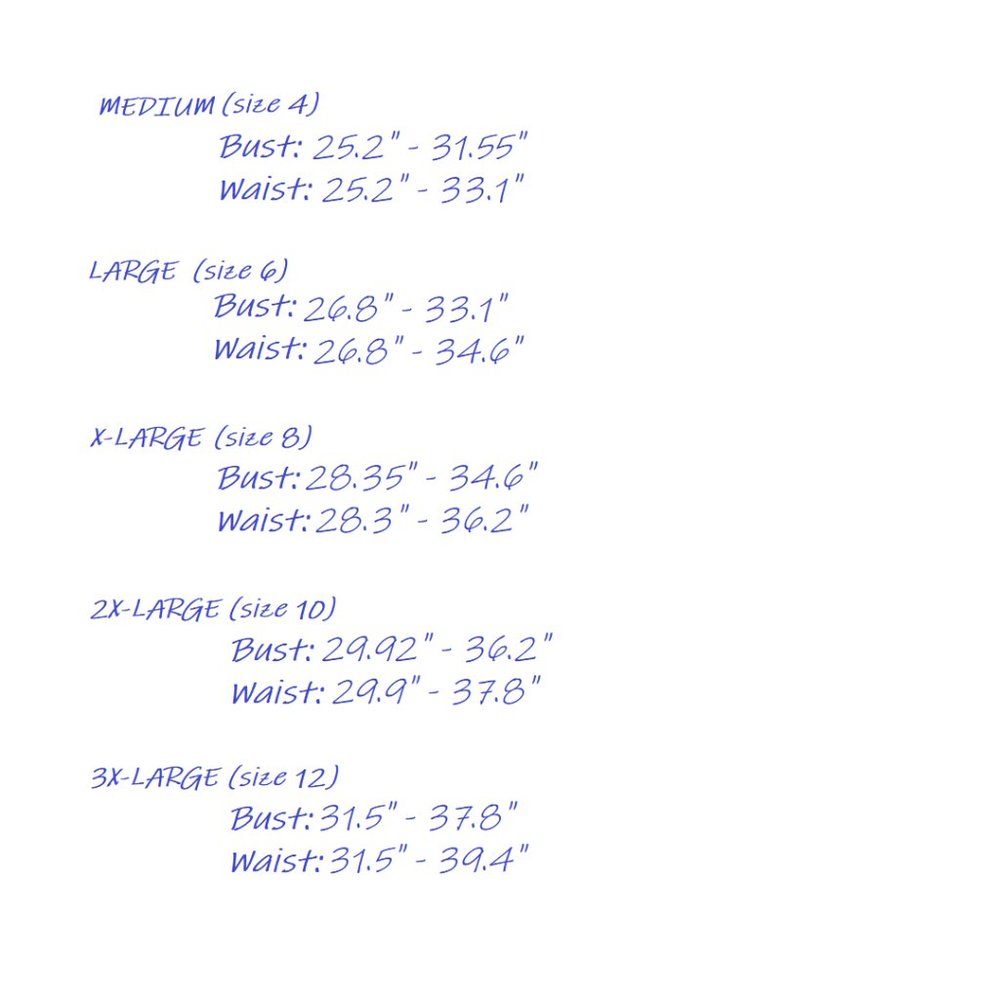 MEDIUM (size 4)
Bust: 25.2" - 31.55"
Waist: 25.2" - 33.1"
LARGE (size 6)
Bust: 26.8" - 33.1"
Waist: 26.8" - 34.6"
X-LARGE (size 8)
Bust: 28.35" - 34.6"
Waist: 28.3" - 36.2"
2X-LARGE (size 10)
Bust: 29.92" - 36.2"
Waist: 29.9" - 37.8"
3X-LARGE (size 12)
Bust: 31.5" - 37.8"
Waist: 31.5" - 39.4"